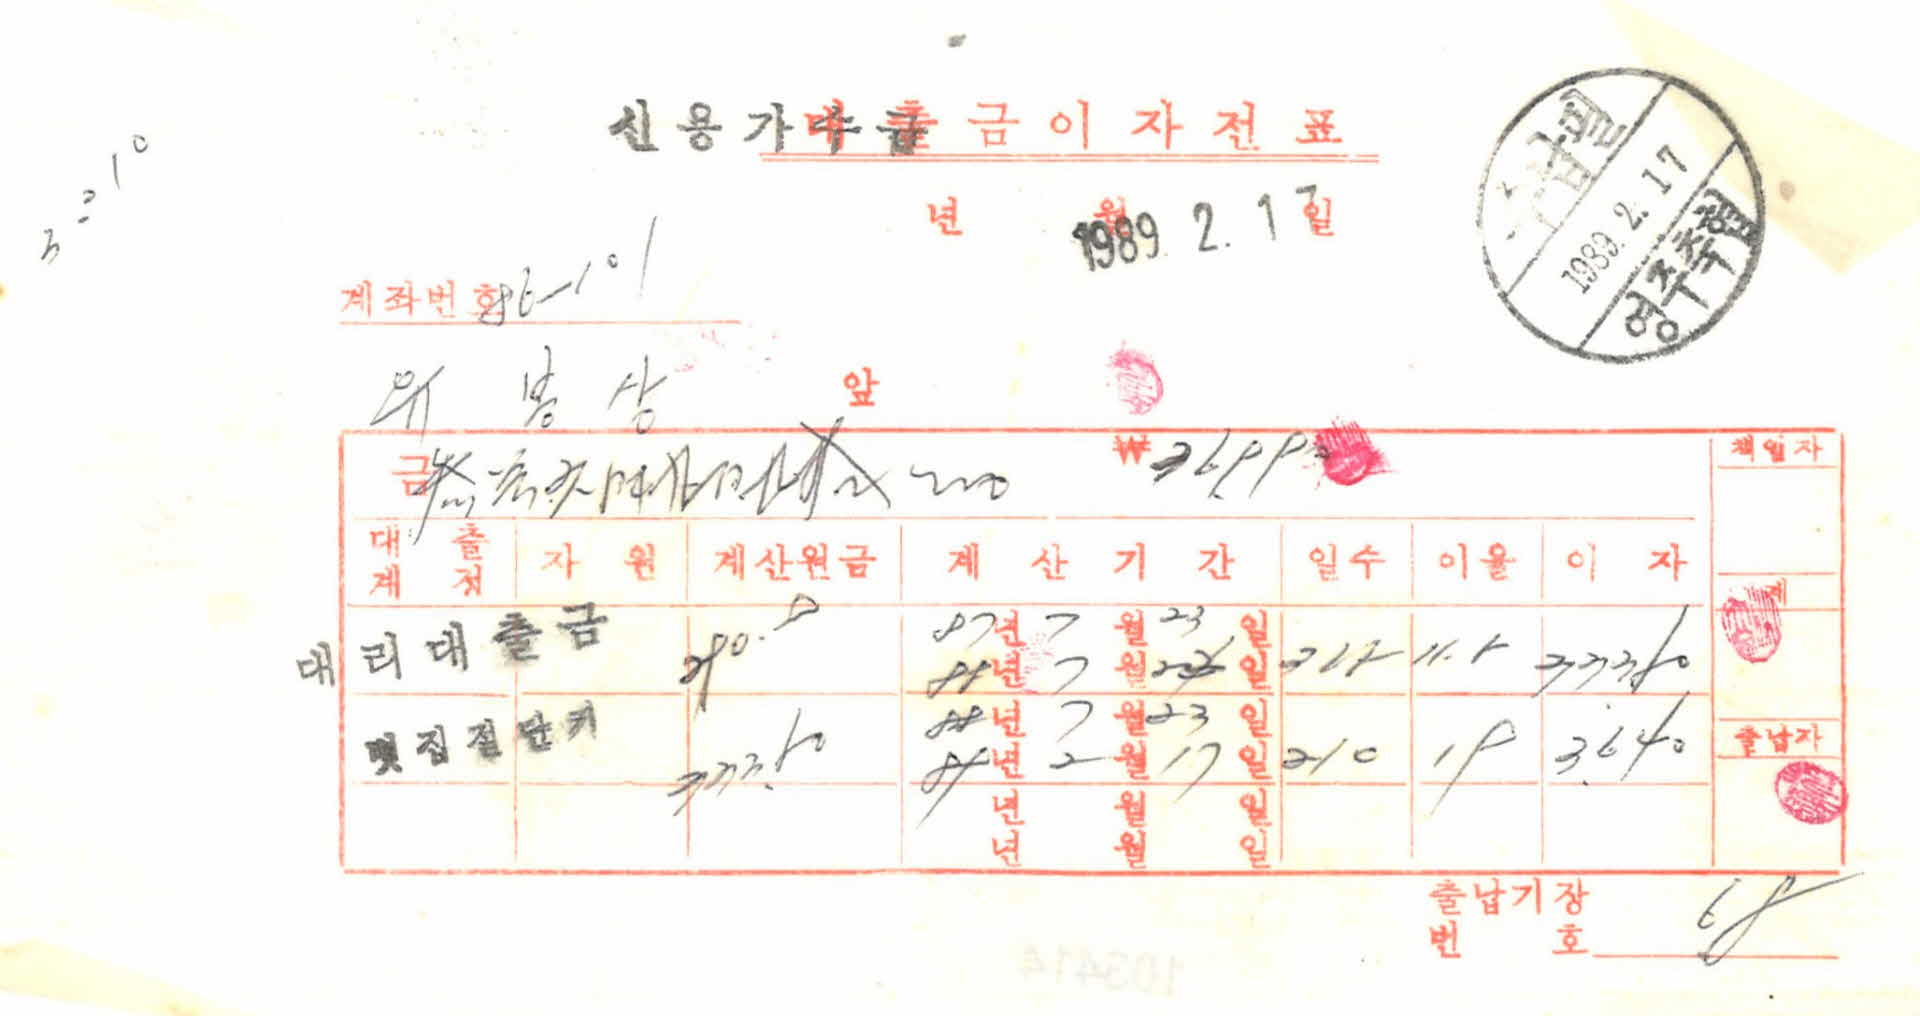 3-210
신용가수금
대출금이자전표
년 월 일
1989. 2. 17
1989. 2. 17
영주축협
계좌번호 86-101
봉상 앞
금 ₩ 36,990
책임자
대출계정 자원 계산원금 계산기간 일수 이율 이자
계
대리대출금 290.0 87년 7월 23일
88년 7월 일 11.5 33350
및집절단기 33350 88년 7월 23일
89년 2월 17일 210 19 3,640
출납자
년 월 일
년 월 일
출납기장
번호 68
103414